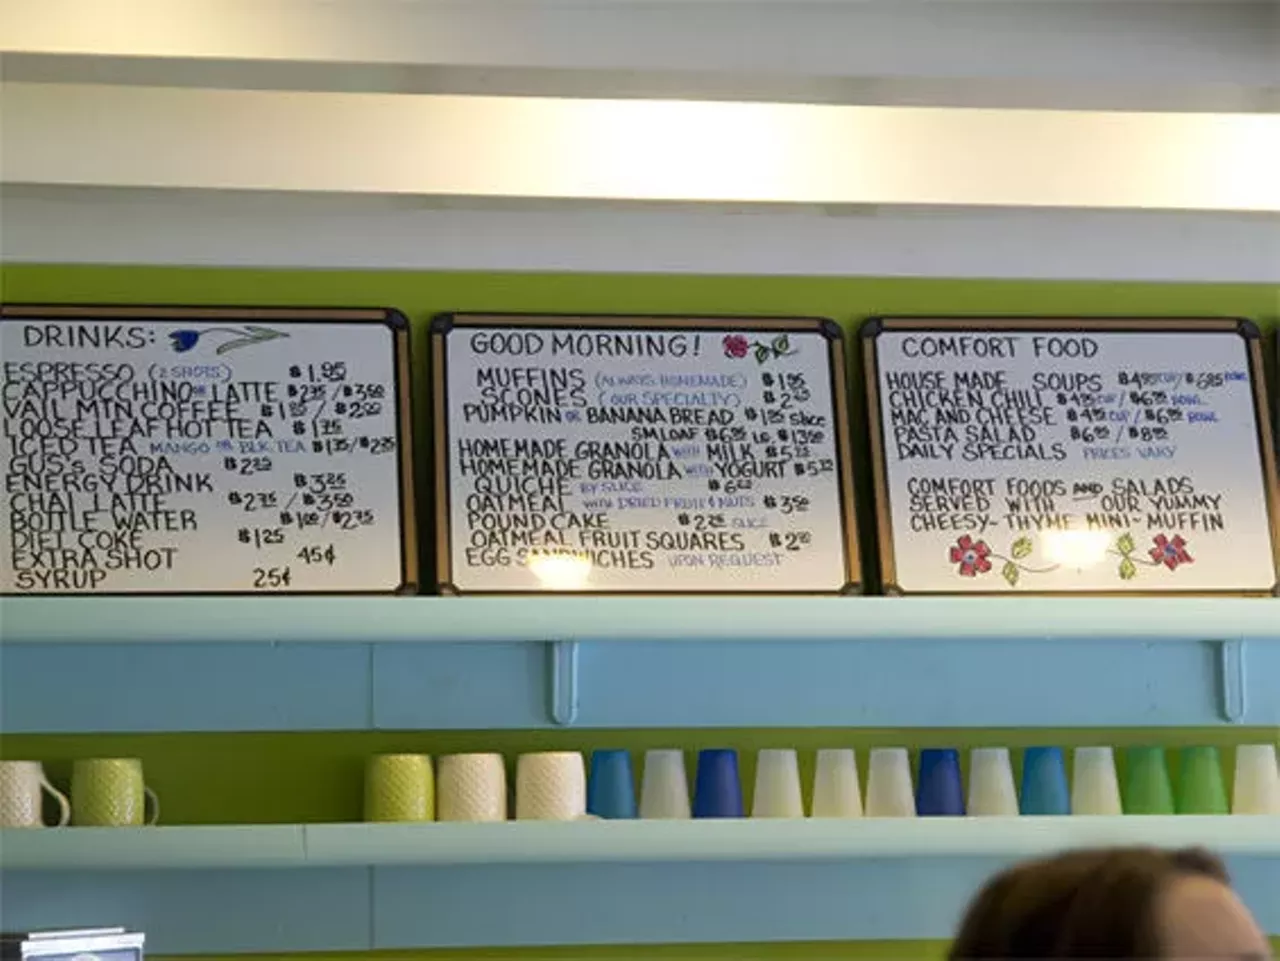 DRINKS:
ESPRESSO (2 SHOTS) $1.95
CAPPUCCHINO OR LATTE $2.75/$3.50
VAIL MTN. COFFEE $1 / $2.00
LOOSE LEAF HOT TEA $1.75
ICED TEA MANGO OR BLK. TEA
GUS'S SODA $2.25
ENERGY DRINK $3.25
CHAI LATTE $2.75 / $3.50
BOTTLE WATER $1.00/$2.75
DIET COKE $1.25
EXTRA SHOT 45¢
SYRUP 25¢
GOOD MORNING!
MUFFINS (ALWAYS HOMEMADE) $1.95
SCONES (OUR SPECIALTY)
PUMPKIN OR BANANA BREAD slice
SM LOAF LG
HOMEMADE GRANOLA WITH MILK
HOMEMADE GRANOLA WITH YOGURT
QUICHE BY SLICE
OATMEAL WITH DRIED FRUIT & NUTS $3.50
POUND CAKE SLICE
OATMEAL FRUIT SQUARES
EGG SANDWICHES UPON REQUEST
COMFORT FOOD
HOUSE MADE SOUPS $4.95 CUP / $6.95 BOWL
CHICKEN CHILI $4.95 CUP / $6.95 BOWL
MAC AND CHEESE $4.95 CUP / $6.95 BOWL
PASTA SALAD $6.95 / $8.95
DAILY SPECIALS PRICES VARY
COMFORT FOODS AND SALADS
SERVED WITH OUR YUMMY
CHEESY-THYME MINI-MUFFIN